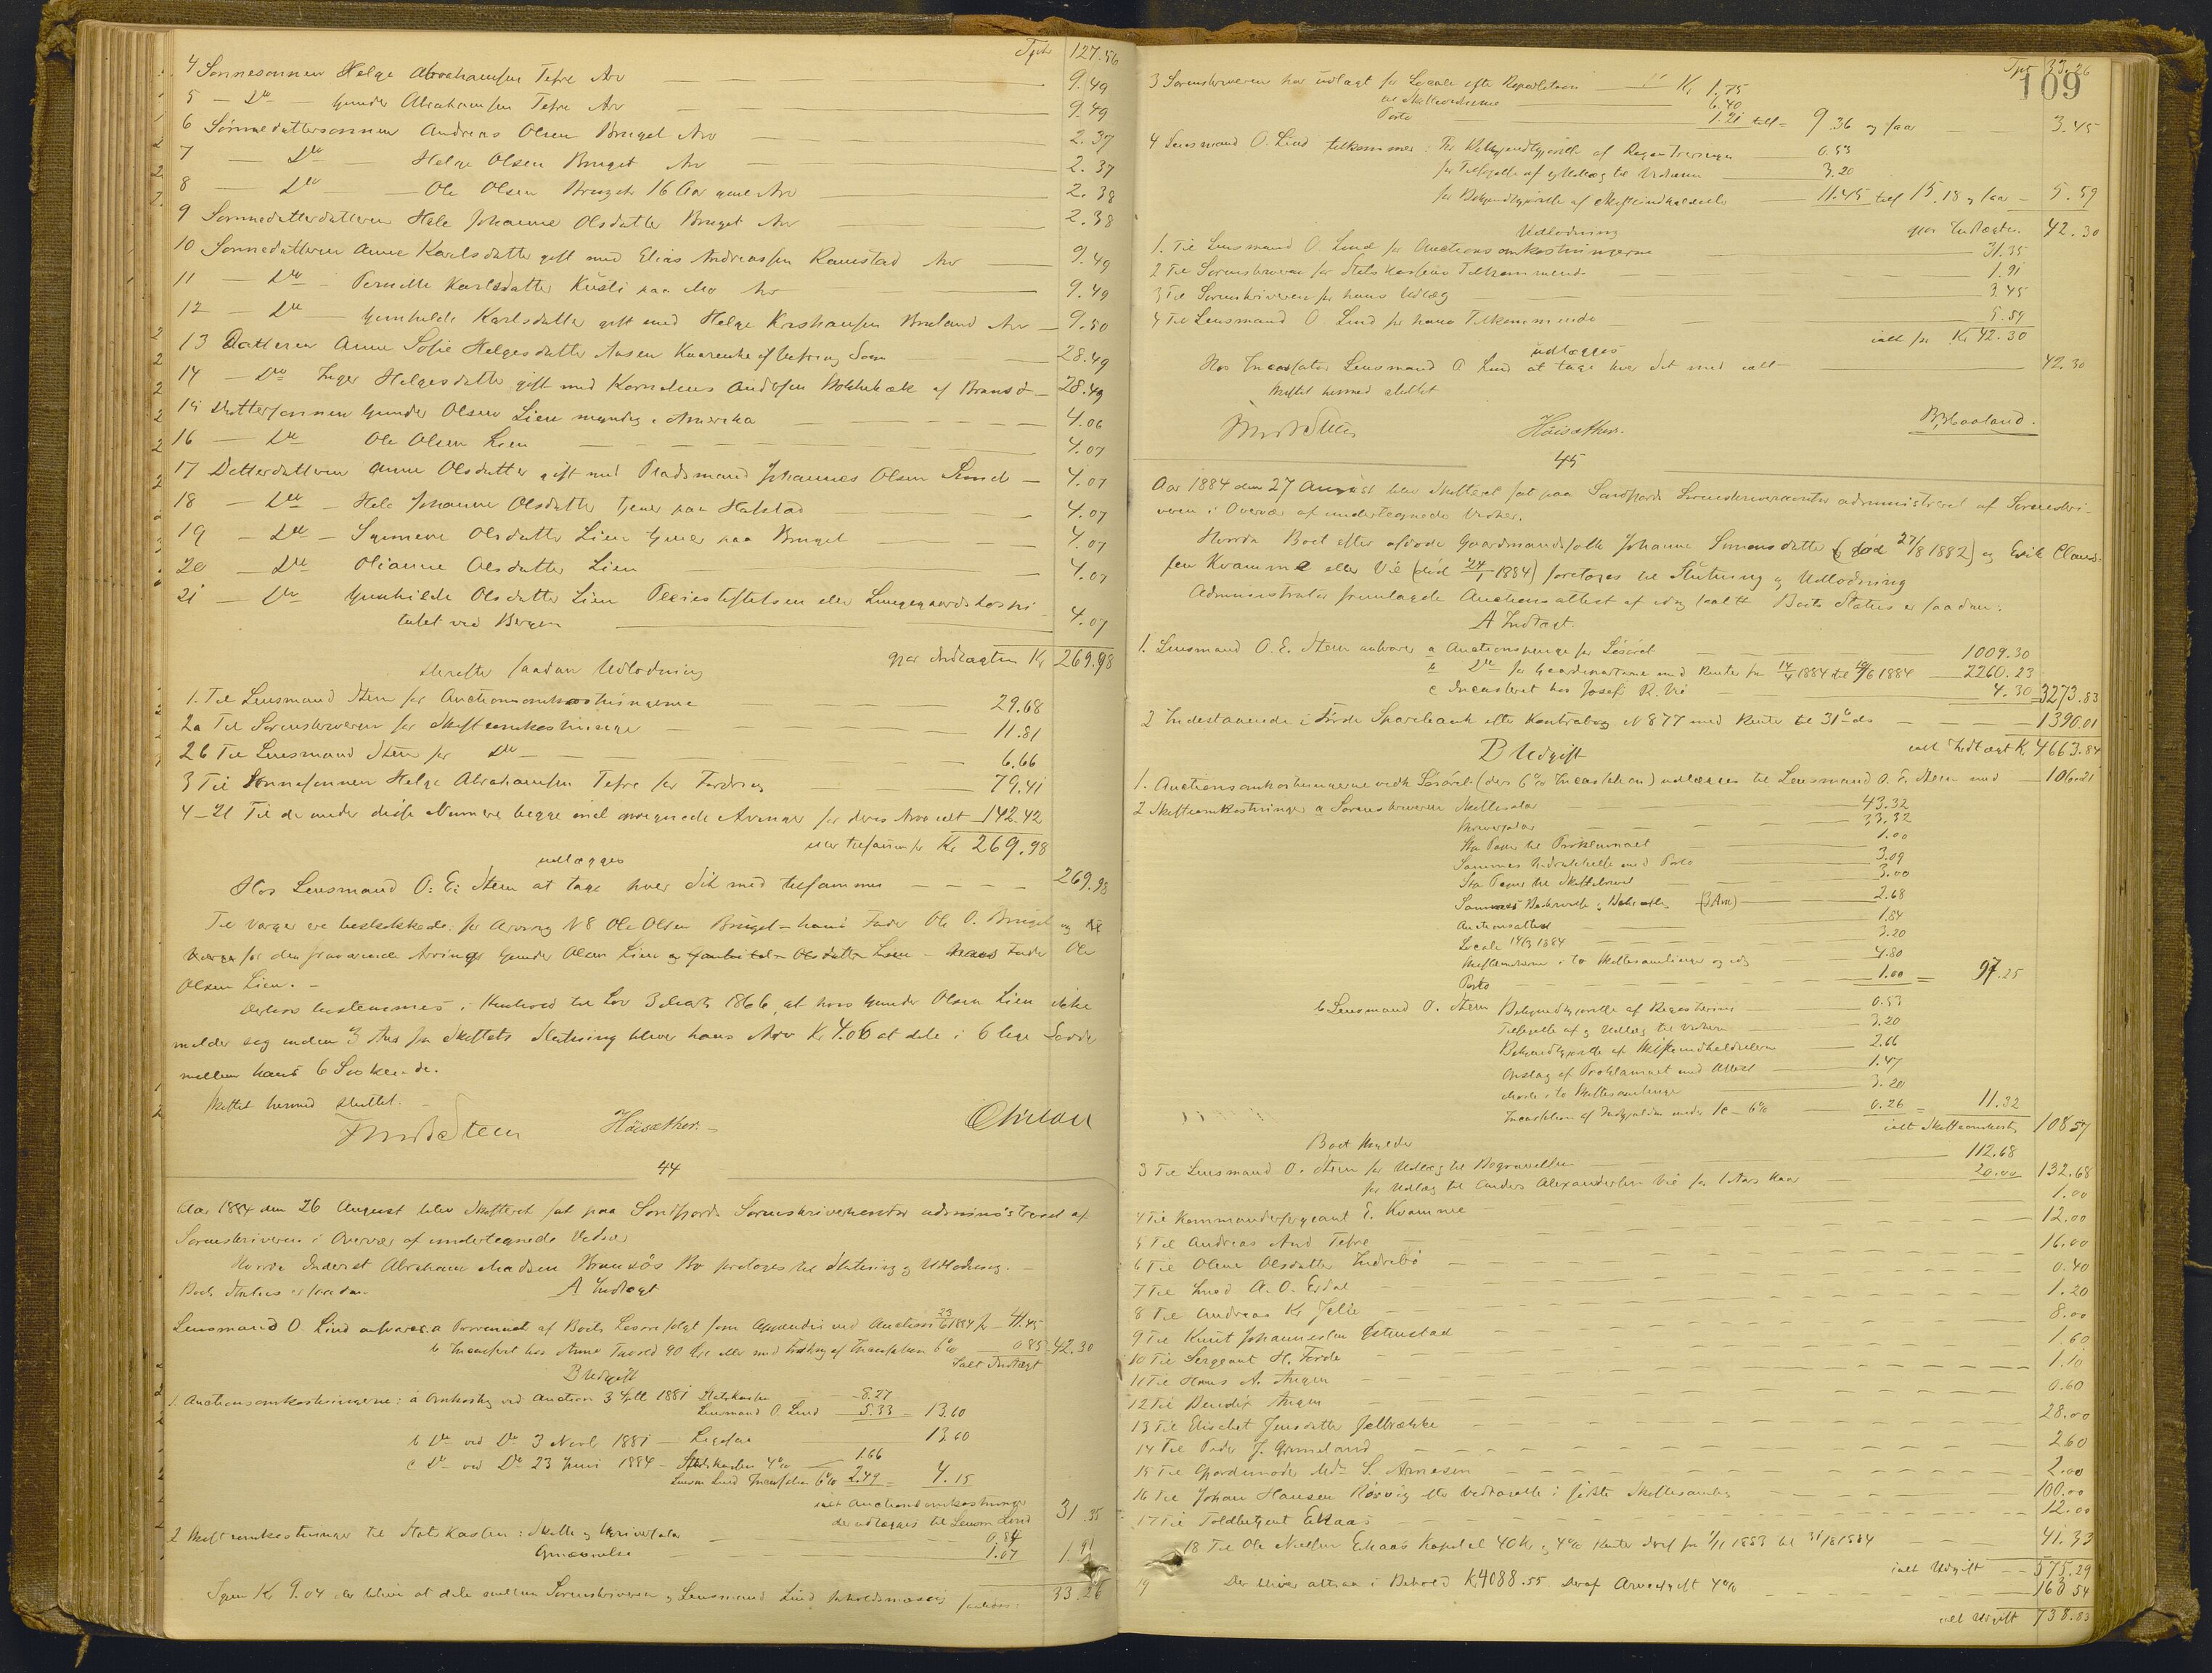 Tpt 127.56
4 Sønnesønnen Helge Abrahamsen Tefre Arv 9.49
5 — Do — Gunder Abrahamsen Tefre Arv 9.49
6 Sønnedattersønnen Andreas Olsen Bruget Arv 2.37
7 — Do — Helge Olsen Bruget Arv 2.37
8 — Do — Ole Olsen Bruget 16 Aar gml Arv 2.38
9 Sønnedatterdatteren Hele Johanne Olsdatter Bruget Arv 2.38
10 Sønnedatteren Anne Karlsdatter gift med Elias Andreassen Ramstad Arv 9.49
11 — Do — Pernille Karlsdatter paa Mo Arv 9.49
12 — Do — Gunhilde Karlsdatter gift med Helge Bruland Arv 9.50
13 Datteren Anne Sofie Helgesdatter Aasen 28.49
14 — Do Inger Helgesdatter gift med Kornelius Andersen 28.49
15 Dattersønnen Gunder Olsen Lien myndig i Amerika 4.06
16 — Do Ole Olsen Lien 4.07
17 Datterdatteren Anne Olsdatter gift med Pladsmand Johannes Olsen Sunde 4.07
18 — Do — Hele Johanne Olsdatter tjener paa Halstad 4.07
19 — Do — Synneve Olsdatter Lien tjener paa Bruget 4.07
20 — Do Olianne Olsdatter Lien 4.07
21 — Do Gunhilde Olsdatter Lien Pleiestiftelsen eller Lungegaardshospi-
talet ved Bergen 4.07
gjør Indtægten Kr 269.98
Herefter saadan Udlodning
1. Til Lensmand Steen for Auctionsomkostningerne 29.68
2a Til Sorenskriveren for Skifteomkostninger 11.81
2b Til Lensmand Steen for Do 6.66
3 Til Sønnesønnen Helge Abrahamsen Tefre for Fordring 79.41
4–21 Til de under disse Numere begge incl opregnede Arvinger for deres Arv ialt 142.42
eller tilsammen Kr 269.98
udlægges
Hos Lensmand O. E. Steen at tage hver Sit med tilsammen 269.98
Til Værger ere beskikkede: for Arving N 8 Ole Olsen Bruget – hans Fader Ole O. Bruget og til
Værge for den fraværende Arving Gunder Olsen Lien og Gunhilde Olsdatter Lien – hans Fader Ole
Olsen Lien. –
Derhos bestemmes i Henhold til Lov 3 Marts 1866, at hvis Gunder Olsen Lien ikke
melder sig inden 3 Aar fra Skiftets Slutning bliver hans Arv Kr 4.06 at dele i 6 lige Lodder
mellem hans 6 Søskende.
Skiftet hermed sluttet. –
Steen Høisæther. –
44
Aar 1884 den 26 August blev Skifteret sat paa Søndfjords Sorenskriverkontor administreret af
Sorenskriveren i Overvær af undertegnede Vidner
Hvorda Inderst Abraham Madsen Bo foretoges til Slutning og Udlodning. –
Boets Status er saadan A Indtægt
Lensmand O. Lind ansvarer: a Provenuet af Boets Løsøre solgt som Appendix ved Auction 23/6 1884 for 41.45
b Incasseret hos Anne 90 Øre eller med Fradrag af Incassation 6% 0.85 42.30
Ialt Indtægt
B Udgift
1. Auctionsomkostningerne: a Omkostng ved Auction 3 1881 Statskassen 8.27
Lensmand O. Lind 5.33 = 13.60
b Do ved Do 3 Novb 1881 – Ligesaa 13.60
c Do ved Do 23 Juni 1884 – Statskassen 4% 1.66
Lensm Lind Incassation 6% 2.49 = 4.15
ialt Auctionsomkostninger
der udlægges til Lensm Lind 31.35
2 Skifteomkostninger til Statskassen: Skifte og Skriversalær 0.84
1.07 1.91
33.26
Igjen Kr 9.04 der bliver at dele mellem Sorenskriveren og Lensmand Lind forholdsmæssig saaledes:
109
Tpt 33.26
3 Sorenskriveren har udlagt for Locale efter Repartition Kr 1.75
til Skiftevidnerne 6.40
Porto 1.21 tils= 9.36 og faar 3.45
4 Lensmand O. Lind tilkommer: for Bekjendtgjørelse af Registreringen 0.53
for Tilsigelse af og Udlæg til Vidnerne 3.20
for Bekjendtgjørelse af Skifteindkaldelse 11.45 tils 15.18 og faar 5.59
Udlodning gjør Indtægten 42.30
1. Til Lensmand O. Lind for Auctionsomkostningerne 31.35
2 Til Sorenskriveren for Statskassens Tilkommende 1.91
3 Til Sorenskriveren for hans Udlæg 3.45
4 Til Lensmand O. Lind for hans Tilkommende 5.59
ialt for Kr 42.30
udlægges
Hos Incassator Lensmand O Lind at tage hver Sit med ialt 42.30
Skiftet hermed sluttet
Steen Høisæther. B. Haaland.
45
Aar 1884 den 27 August blev Skifteret sat paa Søndfjords Sorenskriverkontor administreret af Sorenskri-
veren i Overvær af undertegnede Vidner.
Hvorda Boet efter afdøde Gaardmandsfolk Johanne Simonsdatter (død 27/8 1882) og Erik Claus-
sen Kvamme eller Vie (død 24/1 1884) foretoges til Slutning og Udlodning
Administrator fremlagde Auctionsattest af idag hvorefter Boets Status er saadan:
A Indtægt.
1. Lensmand O. E. Steen ansvarer a Auctionspenge for Løsøret 1009.30
b Do for Gaardeparterne med Renter fra 14/4 1884 til 1884 2260.23
c Incasseret hos Josef R. Vie 4.30 = 3273.83
2 Indestaaende i Førde Sparebank efter Kontrabog N 877 med Renter til 31te ds 1390.01
ialt Indtægt Kr 4663.84
B Udgift
1. Auctionsomkostningerne vedk Løsøret (der 6% Incassation) udlægges til Lensmand O. E. Steen med 106.21
2 Skifteomkostninger a Sorenskriveren Skiftesalær 43.32
Skriversalær 33.32
Sta Papir til Proklamaet 1.00
Sammes Indrykkelse med Porto 3.09
Sta Papir til Skiftebrevet 3.00
Sammes Beskrivelse (3 Ark) 2.68
Auctionsattest 1.84
Locale 14/3 1884 3.20
Skiftevidnerne i to Skiftesamlinger og idag 4.80
Porto 1.00 = 97.25
b Lensmand O. Steen Bekjendtgjørelse af Registrering 0.53
Tilsigelse af og Udlæg til Vidnerne 3.20
Bekjendtgjørelse af Skifteindkaldelsen 2.66
Opslag af Proklamaet med Attest 1.47
Møde i to Skiftesamlinger 3.20
Incassation af Indtægten under 1c – 6% 0.26 = 11.32
ialt Skifteomkostng 108.57
Boet skylder
3 Til Lensmand O. Steen for Udlæg til Begravelsen 112.68
for Udlæg til Anders Alexandersen Vie for 1 Aars Kaar 20.00 132.68
4 Til Kommandersergeant E. Kvamme 1.00
5 Til Andreas And Tefre 12.00
6 Til Oline Olsdatter Indrebø 16.00
7 Til Lmd A. O. Erdal 0.40
8 Til Andreas Kr Jelle 1.20
9 Til Knut Johannessen Østenstad 8.00
10 Til Sergeant H. Førde 1.60
11 Til Hans A. Angen 1.10
12 Til Bendix Angen 0.60
13 Til Elisebet Jensdatter 28.00
14 Til Peder J. Grimeland 2.60
15 Til Gjordemoder Md S. Arnesen 2.00
16 Til Johan Hansen Rørvig efter Vedtagelse i sidste Skiftesamling 100.00
17 Til Toldbetjent Ekaas 12.00
18 Til Ole Nielsen Ekaas Kapital 40 Kr og 4% Renter deraf fra 1/11 1883 til 31/8 1884 41.33
ialt Udgift 575.29
19 Der bliver altsaa i Behold Kr 4088.55 Deraf Arveafgift 4% 163.54
ialt Udgift 738.83